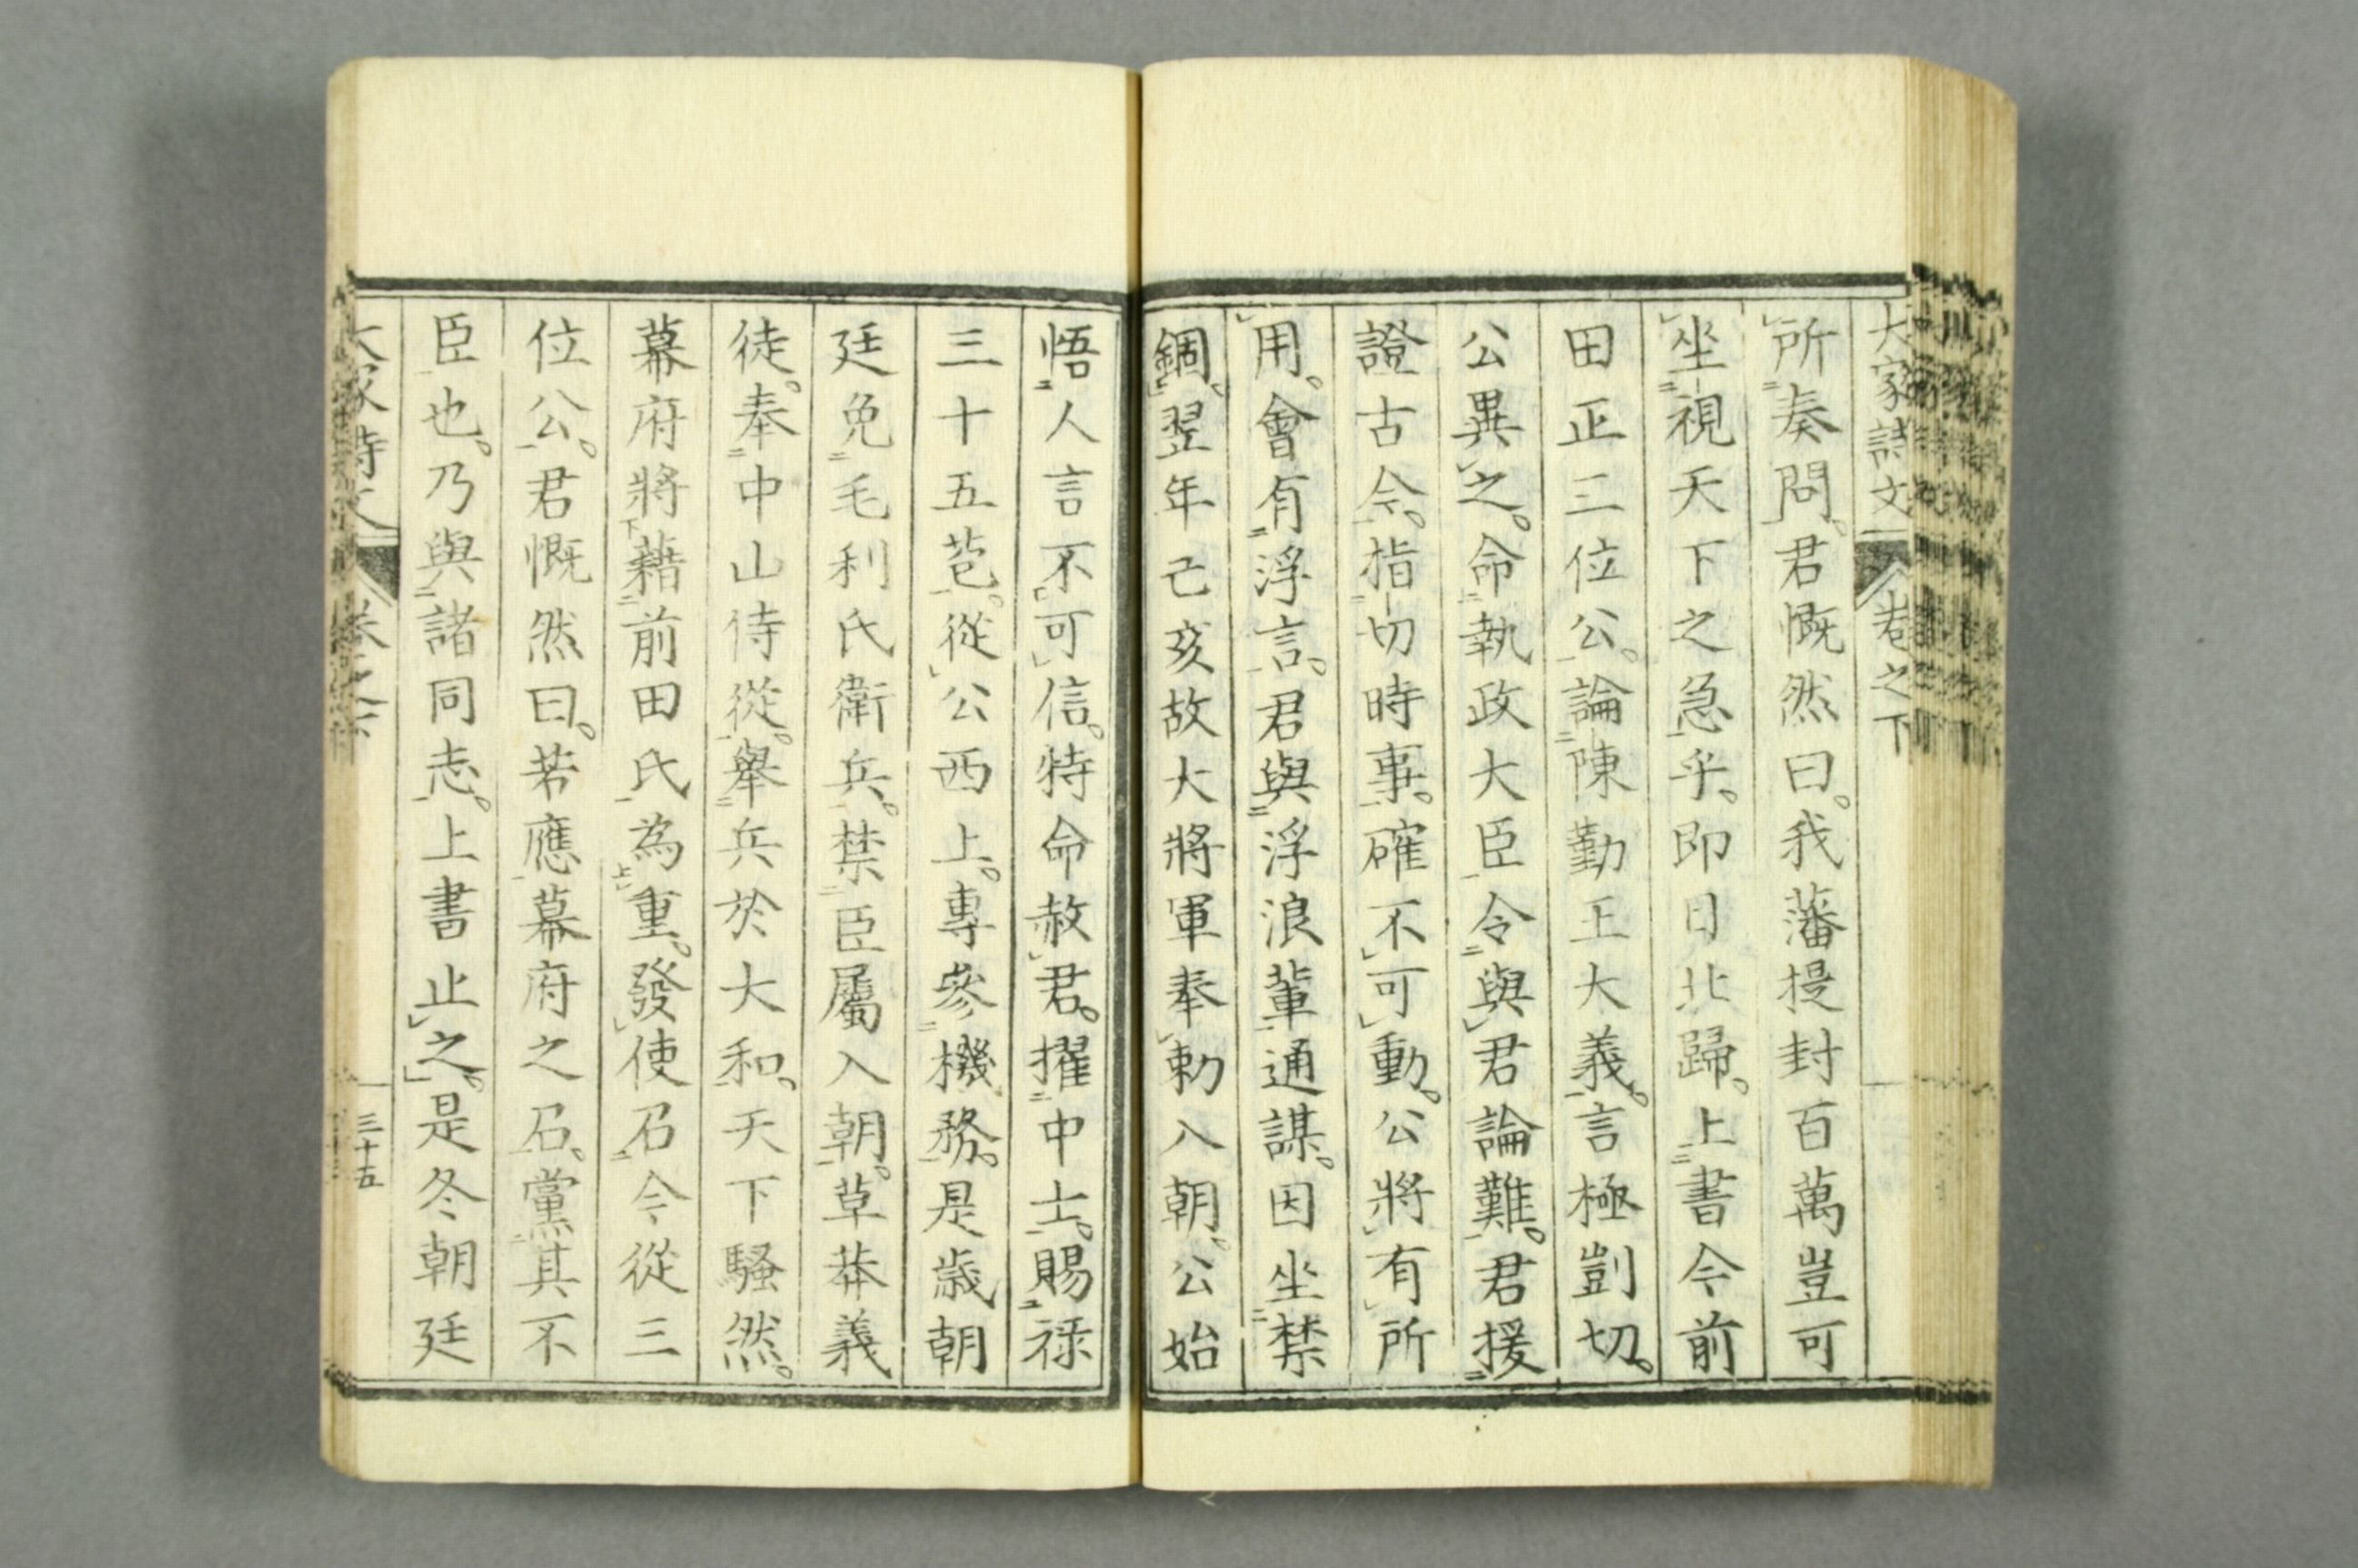 大家詩文 卷之下
所奏問。君慨然曰。我藩提封百萬豈可
坐視天下之急乎。即日北歸。上書今前
田正三位公。論陳勤王大義。言極剴切。
公異之。命執政大臣令與君論難。君援
證古今。指切時事。確不可動。公將有所
用。會有浮言。君與浮浪輩通謀。因坐禁
錮。翌年己亥故大將軍奉勅入朝。公始
悟人言不可信。特命赦君。擢中士。賜祿
三十五苞。從公西上。專參機務。是歲朝
廷免毛利氏衛兵。禁臣屬入朝。草莽義
徒。奉中山侍從。舉兵於大和。天下騷然。
幕府將藉前田氏為重。發使召今從三
位公。君慨然曰。若應幕府之召。黨其不
臣也。乃與諸同志。上書止之。是冬朝廷
大家詩文 卷之下 三十五